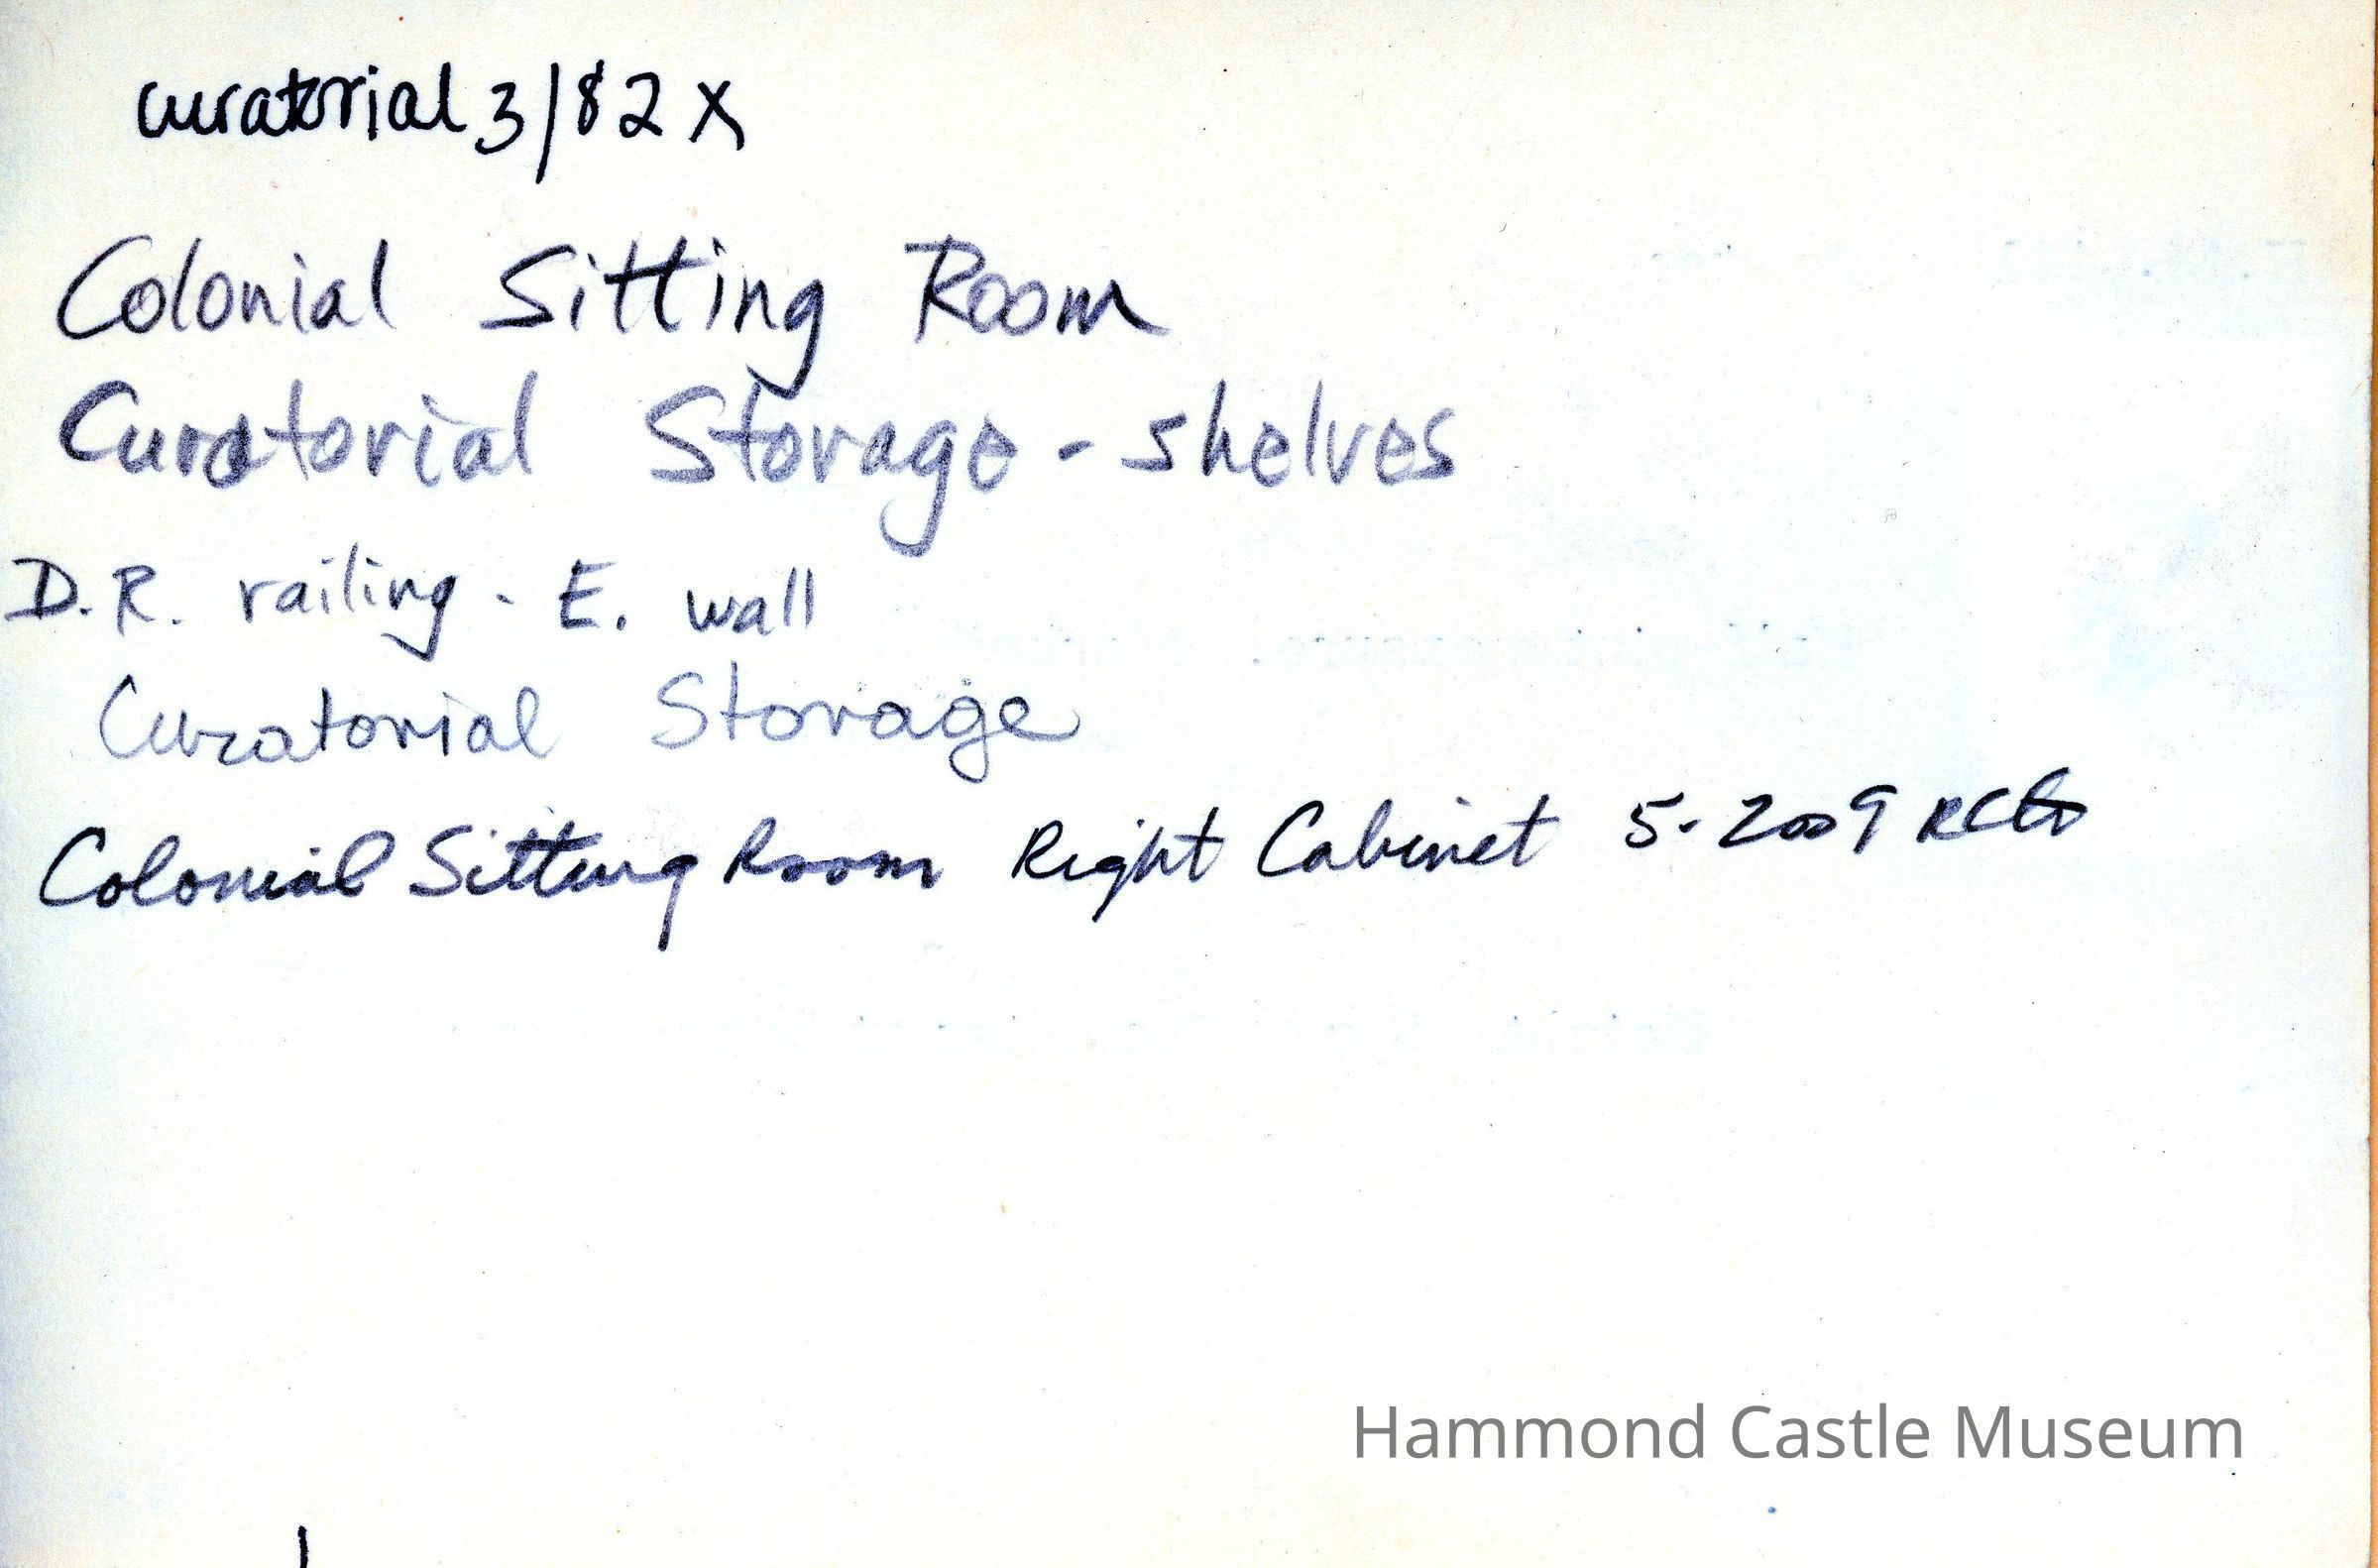 curatorial 3/82 X
Colonial Sitting Room
Curatorial Storage - shelves
D.R. railing - E. wall
Curatorial Storage
Colonial Sitting Room Right Cabinet 5-2009
Hammond Castle Museum